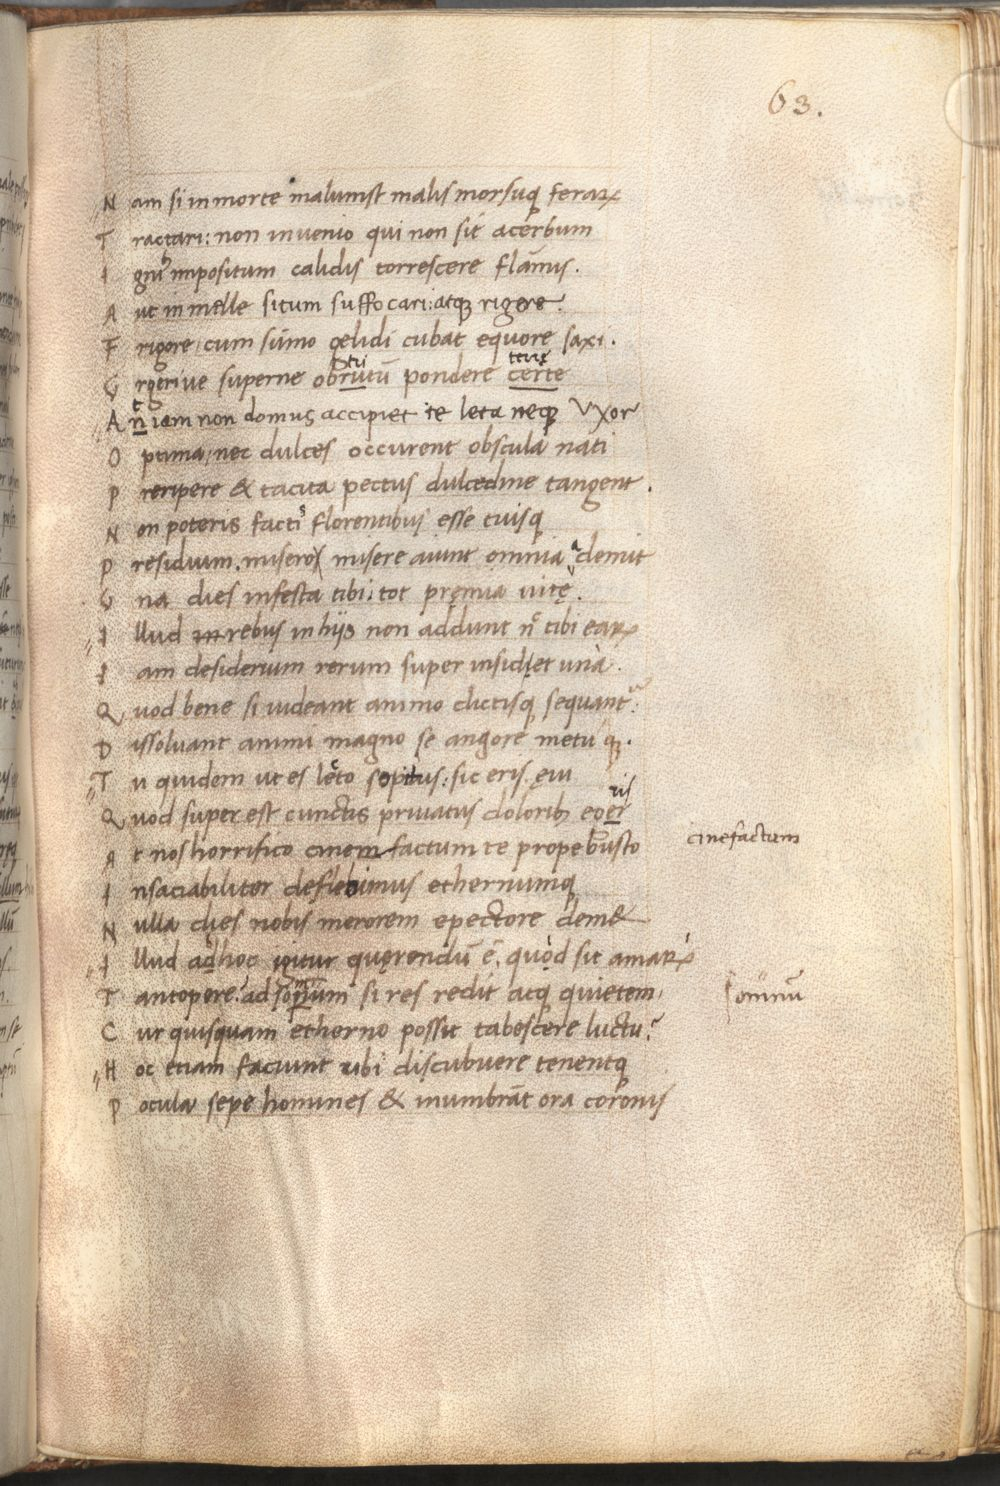 63.
N am si in morte malumst malis morsuq ferarx
T ractari: non invenio qui non sit acerbum
I gnib impositum calidis torrescere flãmis.
A ut in melle situm suffocari: atq rigere.
F rigore, cum sũmo gelidi cubat equore saxi.
tri terrę
U rgerive superne obrutũ pondere certe
t
A ñ iam non domus accipiet te leta neq Vxor
O ptima, nec dulces occurent obscula nati
P reripere & tacita pectus dulcedine tangent.
N on poteris factis florentibus esse tuisq
P residium. miserox misere aiunt omnia a demit
U na dies infesta tibi: tot pręmia vitę.
I llud in rebus in hijs non addunt nc tibi earx
I am desiderium rerum super insidet una.
Q uod bene si videant animo dictisq sequantur
D issolvant animi magno se angore metu q.
T u quidem ut es leto sopitus: sic eris ęvi
ris
Q uod super est cunctis privatus dolorib eoer
A t nos horrifico cinem factum te prope busto
cinefactum
I nsaciabiliter deflebimus ethernumq
N ulla dies nobis merorem epectore demet
I llud adhoc igitur quęrendũ ẽ. quod sit amarx
T antopere: ad somnium si res redit atq quietem
somnũ
C ur quisquam etherno possit tabescere luctu?
H oc etiam faciunt ubi discubuere tenentq
P ocula sepe homines & inumbrãt ora coronis